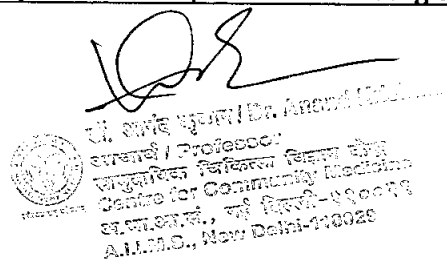 डॉ. आनंद / Dr. Anand
आचार्य / Professor
सामुदायिक चिकित्सा विज्ञान केन्द्र
Centre for Community Medicine
अ.भा.आ.सं., नई दिल्ली-११००२९
A.I.I.M.S., New Delhi-110029